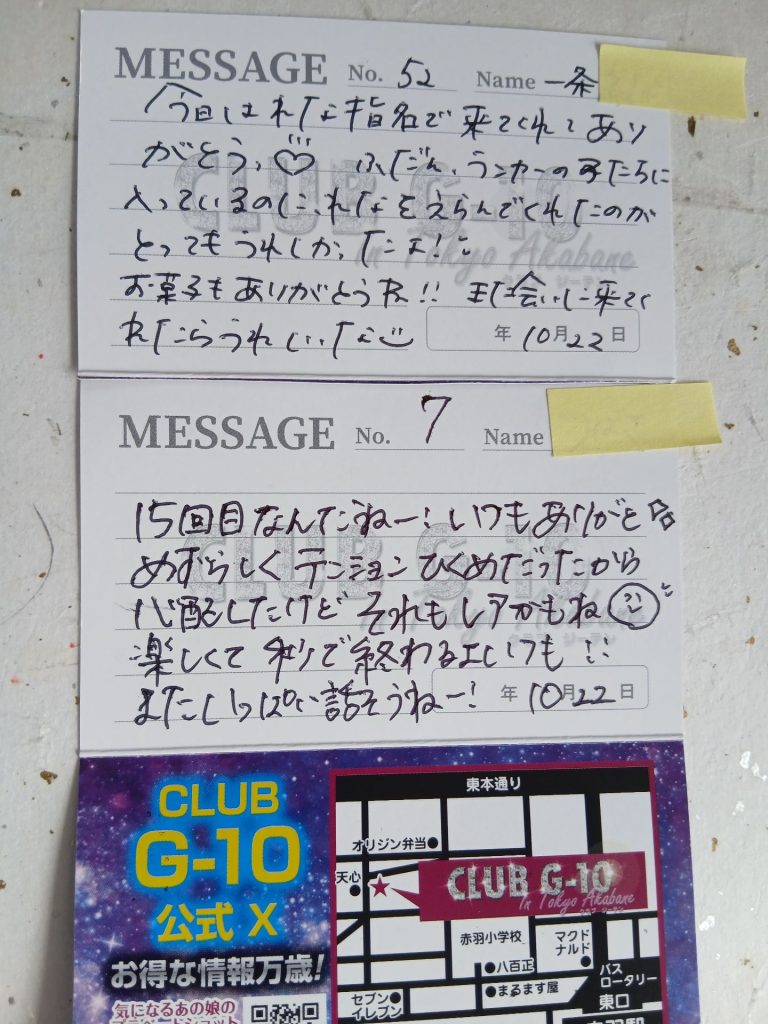 MESSAGE No. 52 Name 一条
今日はれな指名で来てくれてあり
がとう♡ ふだん、ランカーの子たちに
入っているのに、れなをえらんでくれたのが
とってもうれしかったよ!
お菓子もありがとうね!! また会いに来てく
れたらうれしいな
年 10月22日
MESSAGE No. 7 Name
15回目なんだねー!いつもありがと
めずらしくテンションひくめだったから
心配したけど それもレアかもね
楽しくて 秒で終わるよいつも!!
またいっぱい話そうねー!
年 10月22日
CLUB
G-10
公式 X
お得な情報万歳!
気になるあの娘の
東本通り
オリジン弁当
天心
CLUB G-10
In Tokyo Akabane
クラブ ジーテン
赤羽小学校
マクド
ナルド
八百正
まるます屋
バス
ロータリー
東口
セブン
イレブン